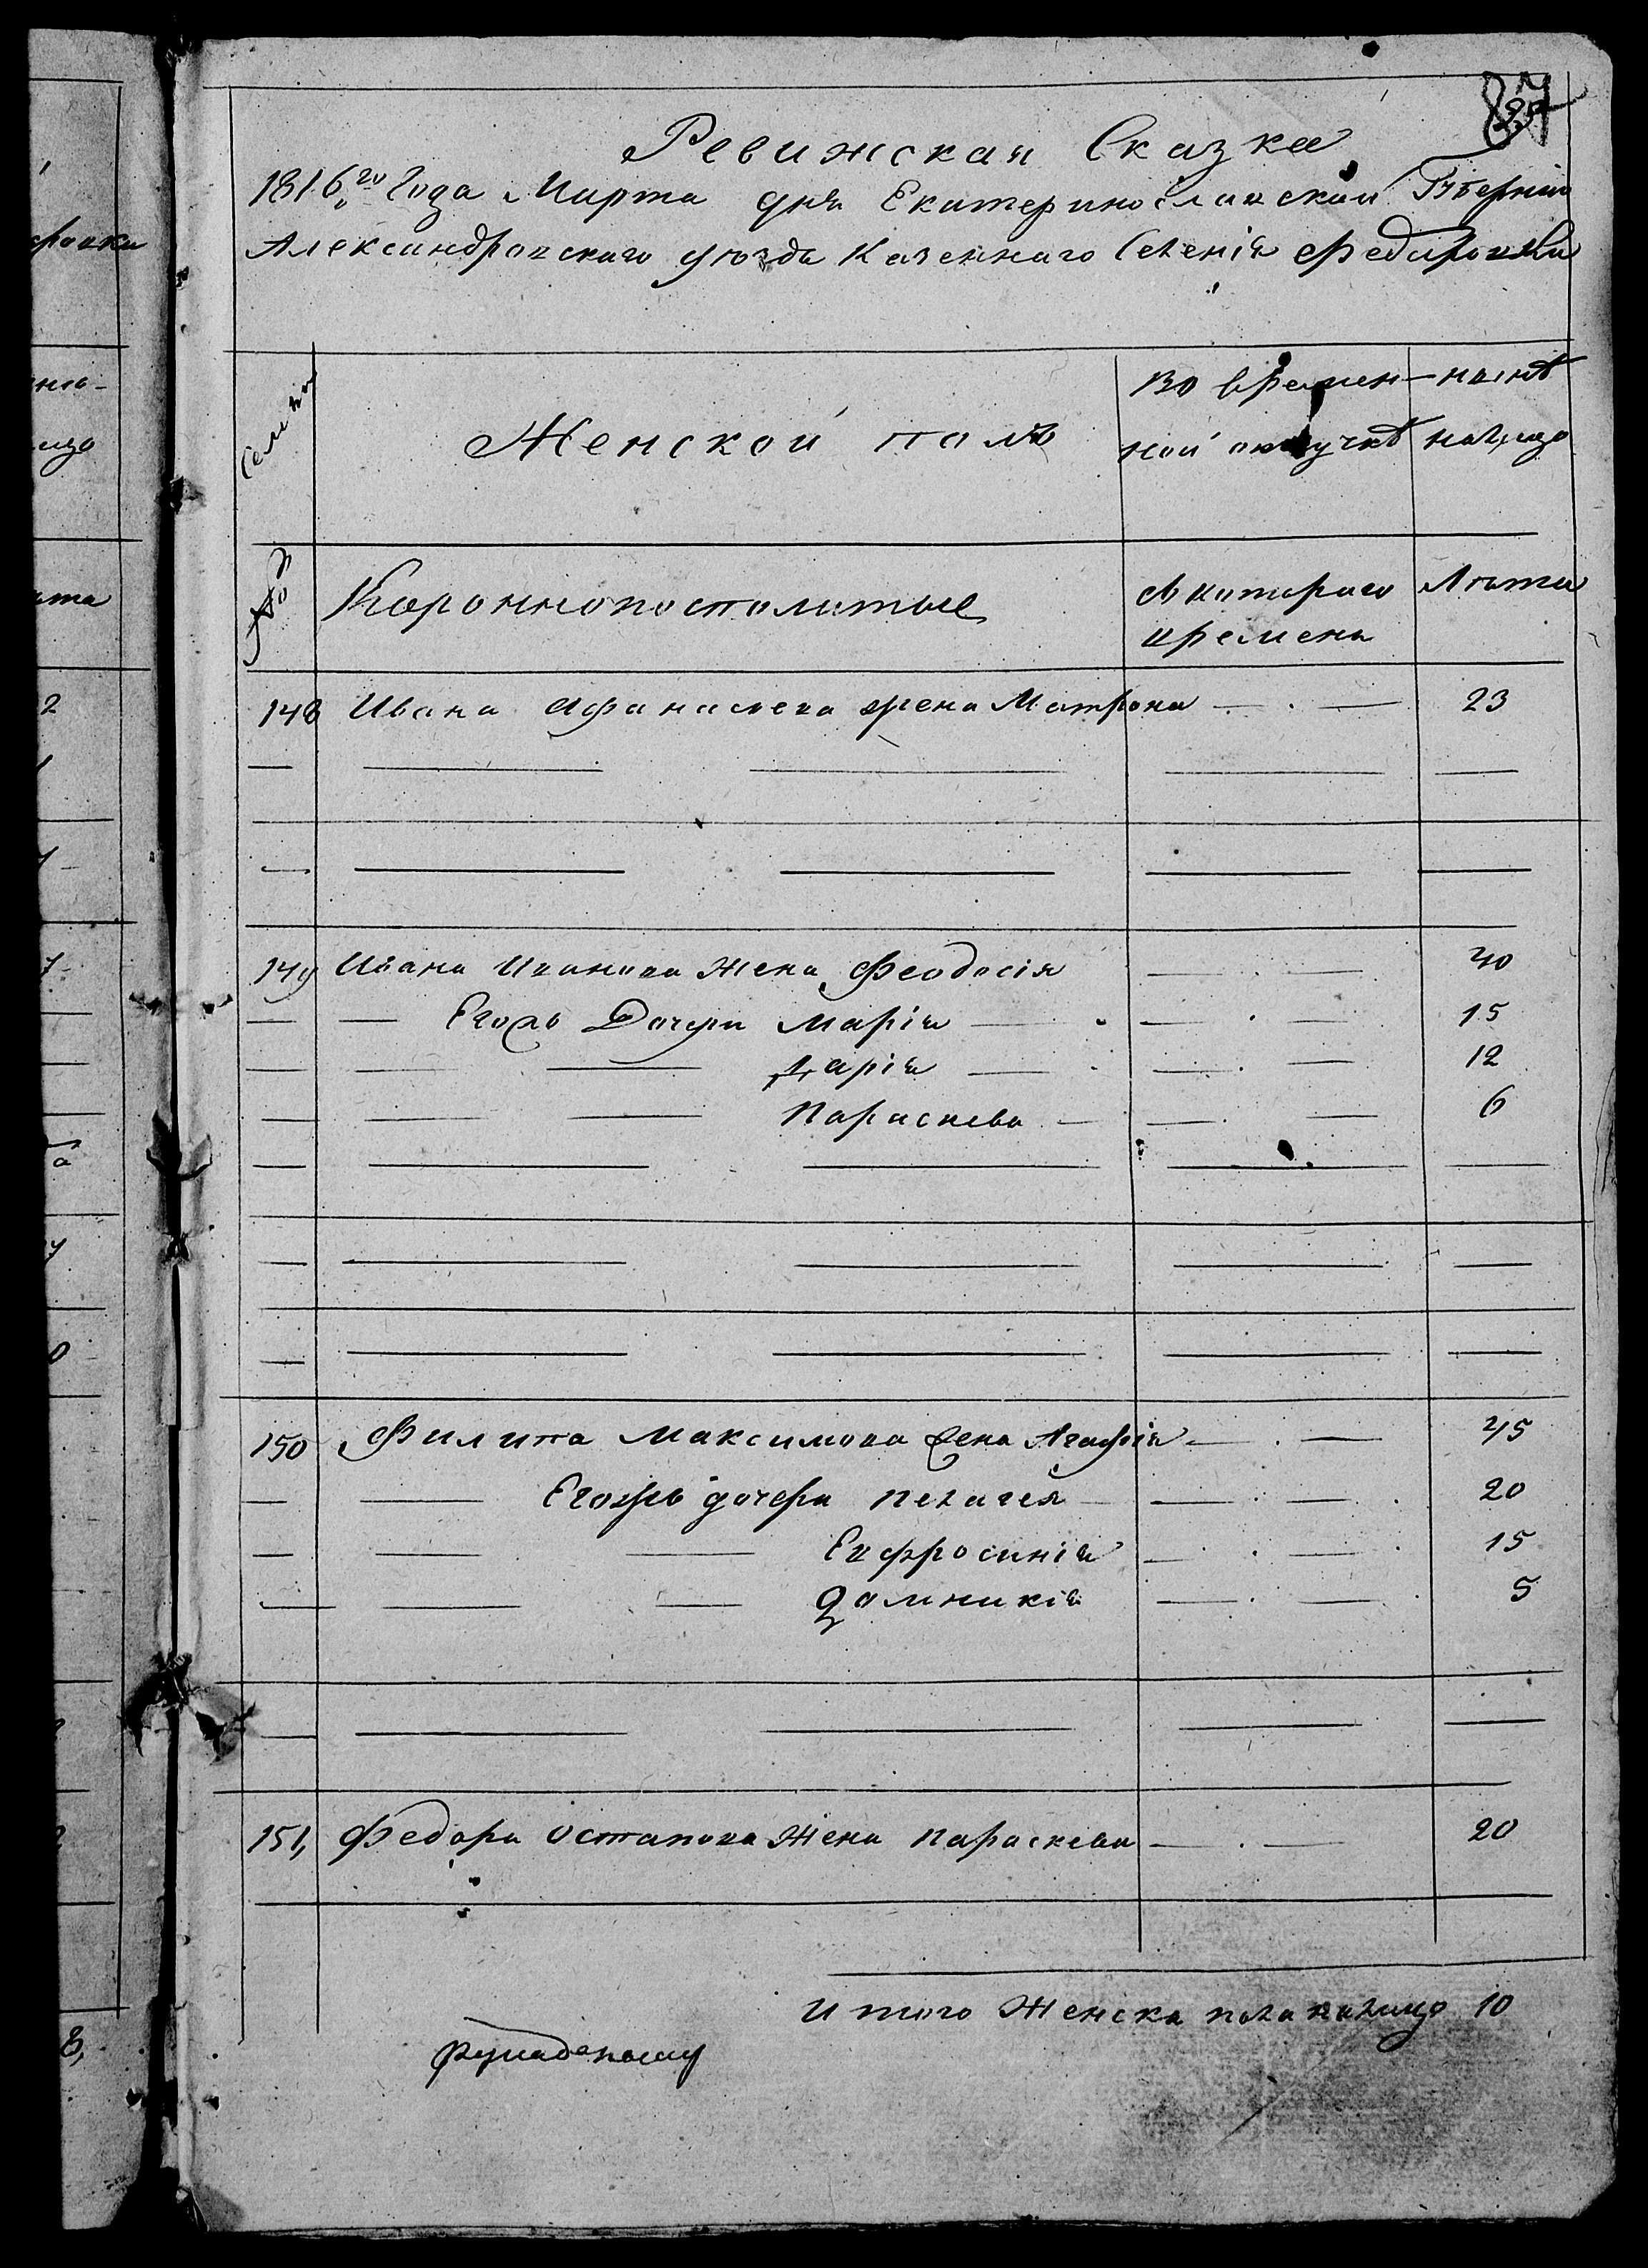 87
Ревижская Сказка
1816го Года Марта дня Екатеринославской Губернии
Александровского уезда Казенного Селенія Федоровки
Семьи Женской полъ Во времен- ной отлучкѣ нынѣ налицо
№ Короннопосполитые Съ котораго времени Лѣта
148 Ивана Афанасьева жена Матрона 23
149 Ивана Иванова Жена Феодосія 40
Егожъ Дочери Марія 15
Дарія 12
Параскева 6
150 Филипа Максимова Жена Агафія 45
Егожъ дочери Пелагея 20
Евфросинія 15
Домникія 5
151, Федора Остапова Жена Параскева 20
Итого Женска пола налицо 10